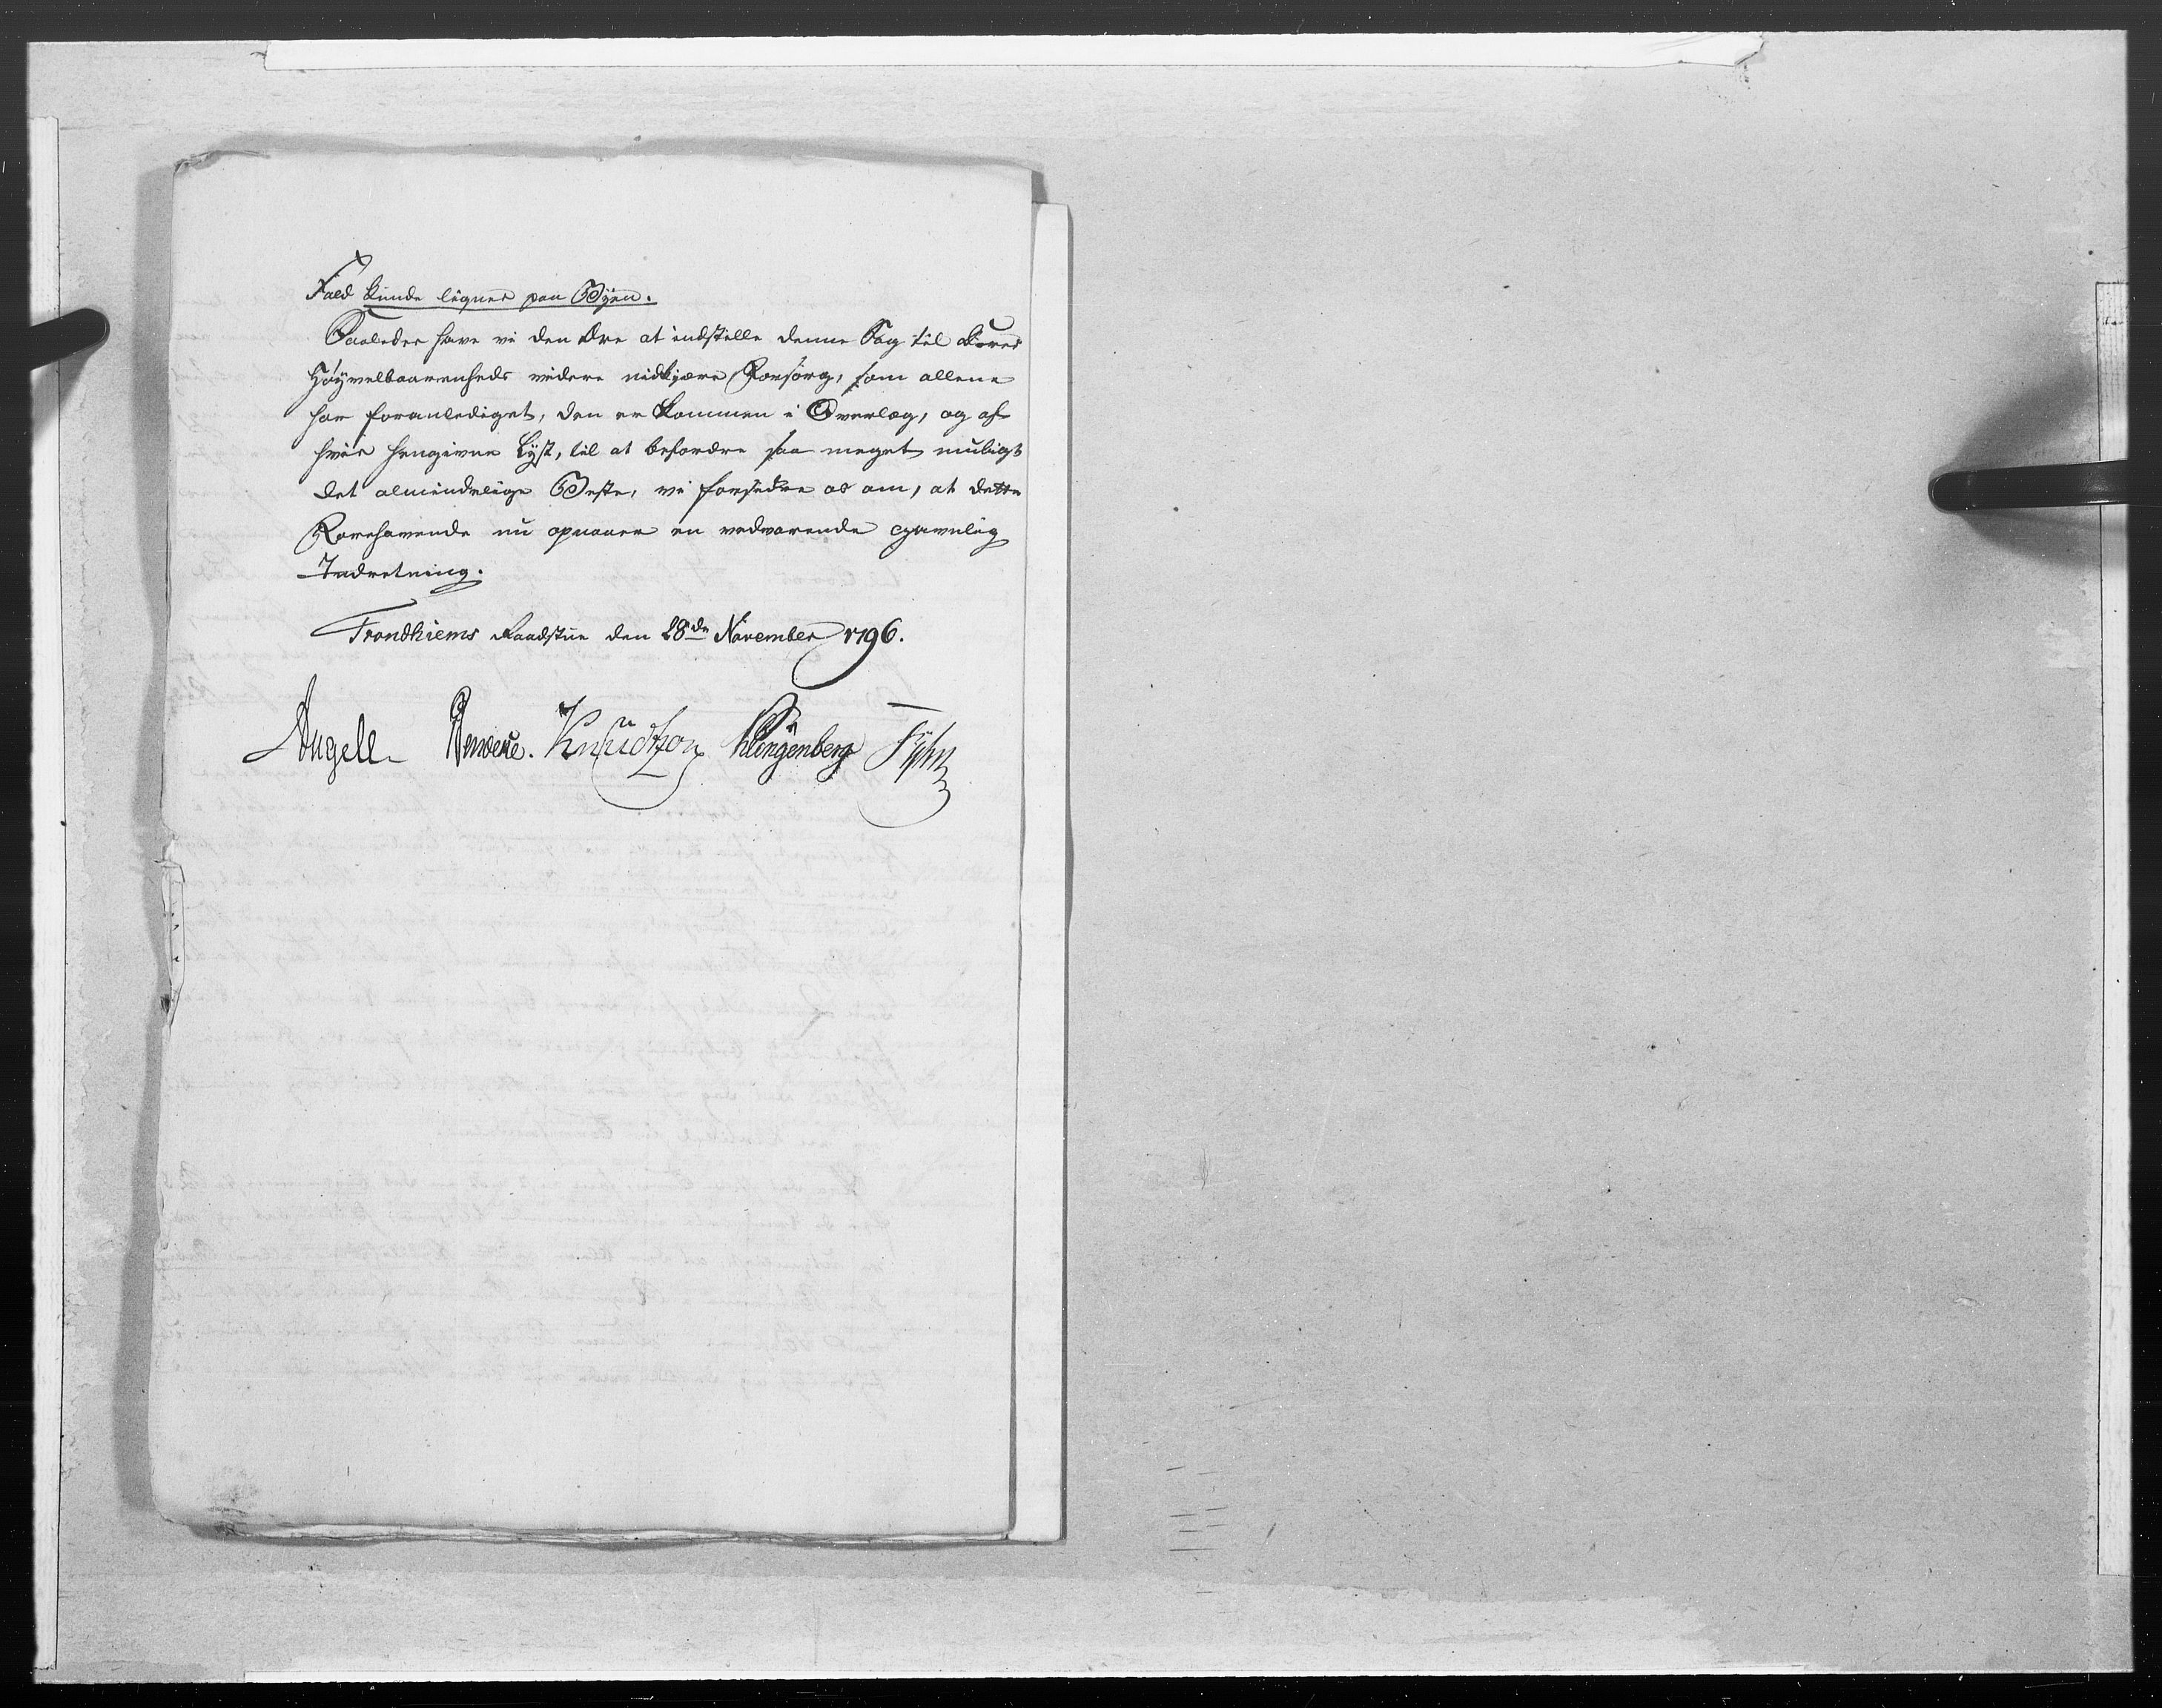 Fald kunde lignes paa Byen.
Saaledes have vi den Ære at indstille denne Sag til Deres
Høyvelbaarenheds videre nidkjære Forsorg, som allene
har foranlediget, den er kommen i Overlæg, og af
hvis hengivne Lyst, til at befordre saa meget muligt
det almindelige Beste, vi forsikre os om, at dette
Forehavende nu opnaaer en vedvarende gavnlig
Indretning.
Trondhiems Raadstue den 28de November 1796.
Angell Knudtzon Klingenberg Fyhn